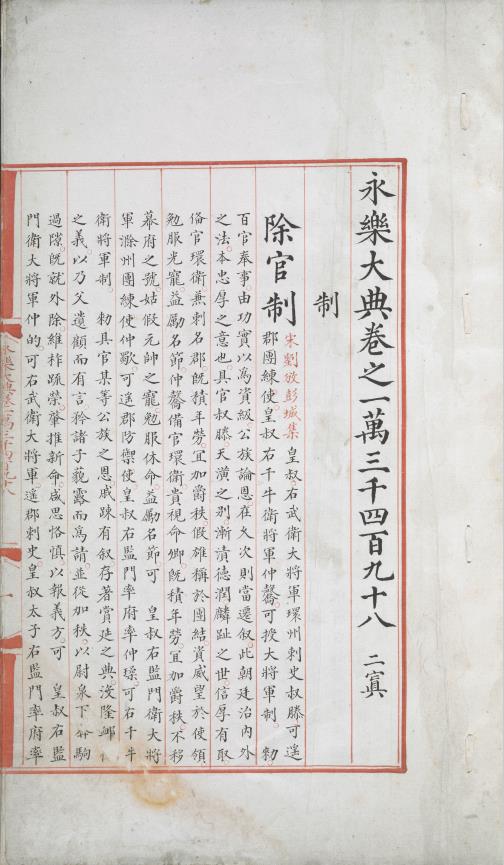 永樂大典卷之一萬三千四百九十八 二寘
制
除官制 宋劉攽彭城集 皇叔右武衛大將軍環州刺史叔滕可遙
郡團練使皇叔右千牛衛將軍仲䮾可授大將軍制 勑
百官奉事由功實以為資級公族論恩在久次則當遷叙此朝廷治內外
之法本忠厚之意也具官叔滕天潢之別漸漬德潤麟趾之世信厚有取
俻官環衛兼刺名郡既積年勞宜加爵秩假雄稱於團結資威望於使領
勉服光寵益勵名節仲䮾備官環衛貴視命卿既積年勞宜加爵秩不移
幕府之號姑假元帥之寵勉服休命益勵名節可 皇叔右監門衛大將
軍滁州團練使仲歇可遙郡防禦使皇叔右監門率府率仲瑔可右千牛
衛將軍制 勑具官某等公族之恩戚踈有叙存著賞延之典沒隆
之義以乃父遺顧而有言矜諸子藐露而焉請並從加秩以尉泉下 駒
過隙既就外除維柞疏榮肇推新命感思恪慎以報義方可 皇叔右監
門衛大將軍仲的可右武衛大將軍遙郡刺史皇叔太子右監門率府率
永樂大典卷一萬三千四百九十八